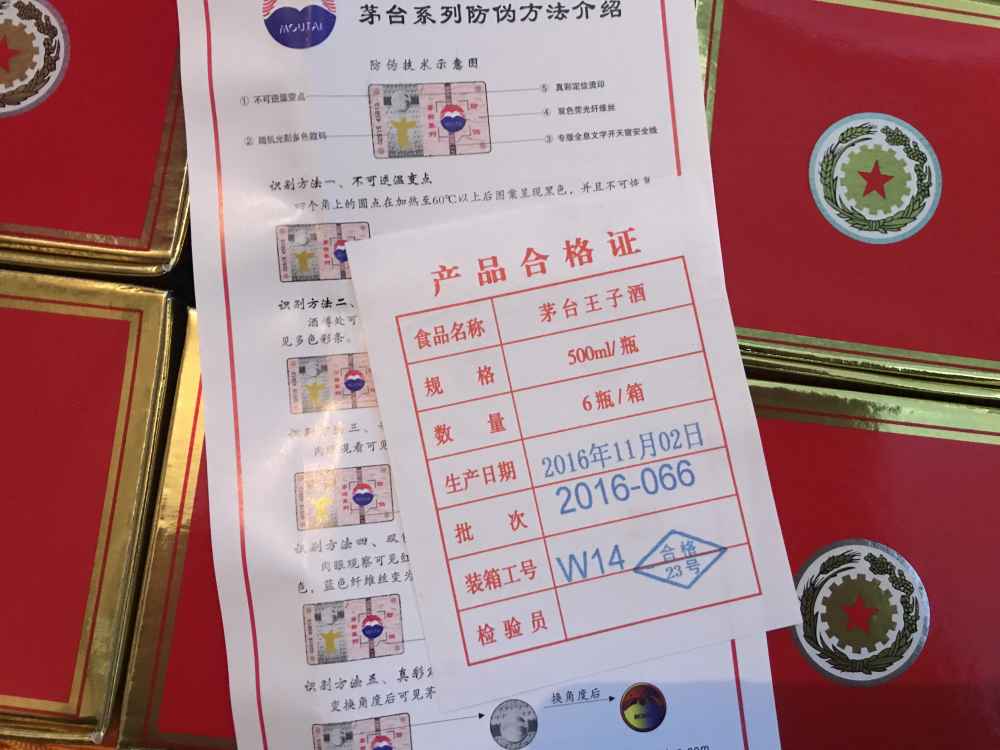 MOUTAI
茅台系列防伪方法介绍
防伪技术示意图
① 不可逆温变点
② 随机光刻多色数码
⑤ 真彩定位烫印
④ 双色荧光纤维丝
③ 专版全息文字开天窗安全线
识别方法一、不可逆温变点
个角上的圆点在加热至60℃以上后图案呈现黑色，并且不可恢复
识别方法二、
见多色彩条。
识别方法四、双
肉眼观察可见红
色，蓝色纤维丝变为
识别方法五、真彩
变换角度后可见茅
换角度后
产品合格证
食品名称 茅台王子酒
规格 500ml/瓶
数量 6瓶/箱
生产日期 2016年11月02日
批次 2016-066
装箱工号 W14
合格
23号
检验员